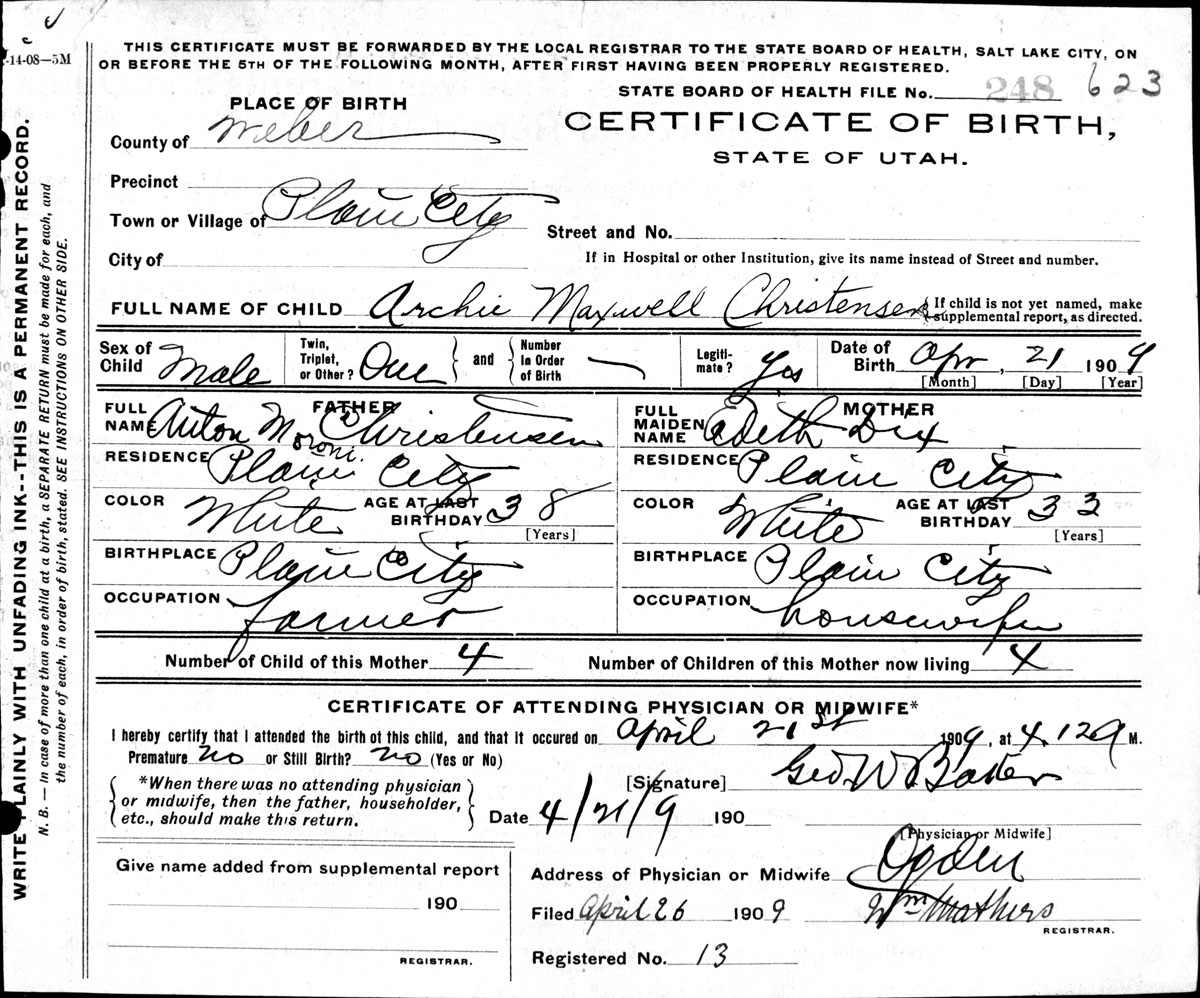 -14-08—5M
THIS CERTIFICATE MUST BE FORWARDED BY THE LOCAL REGISTRAR TO THE STATE BOARD OF HEALTH, SALT LAKE CITY, ON
OR BEFORE THE 5TH OF THE FOLLOWING MONTH, AFTER FIRST HAVING BEEN PROPERLY REGISTERED.
STATE BOARD OF HEALTH FILE No. 248 623
PLACE OF BIRTH
CERTIFICATE OF BIRTH,
STATE OF UTAH.
County of Weber
Precinct
Town or Village of Plain City
Street and No.
City of
If in Hospital or other Institution, give its name instead of Street and number.
FULL NAME OF CHILD Archie Maxwell Christensen
If child is not yet named, make
supplemental report, as directed.
Sex of Child Male
Twin, Triplet, or Other? One
and
Number in Order of Birth
Legiti-mate? Yes
Date of Birth Apr, 21 1909
[Month] [Day] [Year]
FATHER
FULL NAME Anton Moroni Christensen
RESIDENCE Plain City
COLOR White
AGE AT LAST BIRTHDAY 38
[Years]
BIRTHPLACE Plain City
OCCUPATION farmer
MOTHER
FULL MAIDEN NAME Edith Dix
RESIDENCE Plain City
COLOR White
AGE AT LAST BIRTHDAY 33
[Years]
BIRTHPLACE Plain City
OCCUPATION housewife
Number of Child of this Mother 4
Number of Children of this Mother now living 4
CERTIFICATE OF ATTENDING PHYSICIAN OR MIDWIFE*
I hereby certify that I attended the birth of this child, and that it occured on April 21st 1909, at 4.12 a M.
Premature no or Still Birth? no (Yes or No)
*When there was no attending physician
or midwife, then the father, householder,
etc., should make this return.
[Signature] Geo W Baker
Date 4/21/9 190
[Physician or Midwife]
Give name added from supplemental report
190
REGISTRAR.
Address of Physician or Midwife Ogden
Filed April 26 1909
Wm Mathers
REGISTRAR.
Registered No. 13
WRITE PLAINLY WITH UNFADING INK--THIS IS A PERMANENT RECORD.
N. B. — In case of more than one child at a birth, a SEPARATE RETURN must be made for each, and
the number of each, in order of birth, stated. SEE INSTRUCTIONS ON OTHER SIDE.